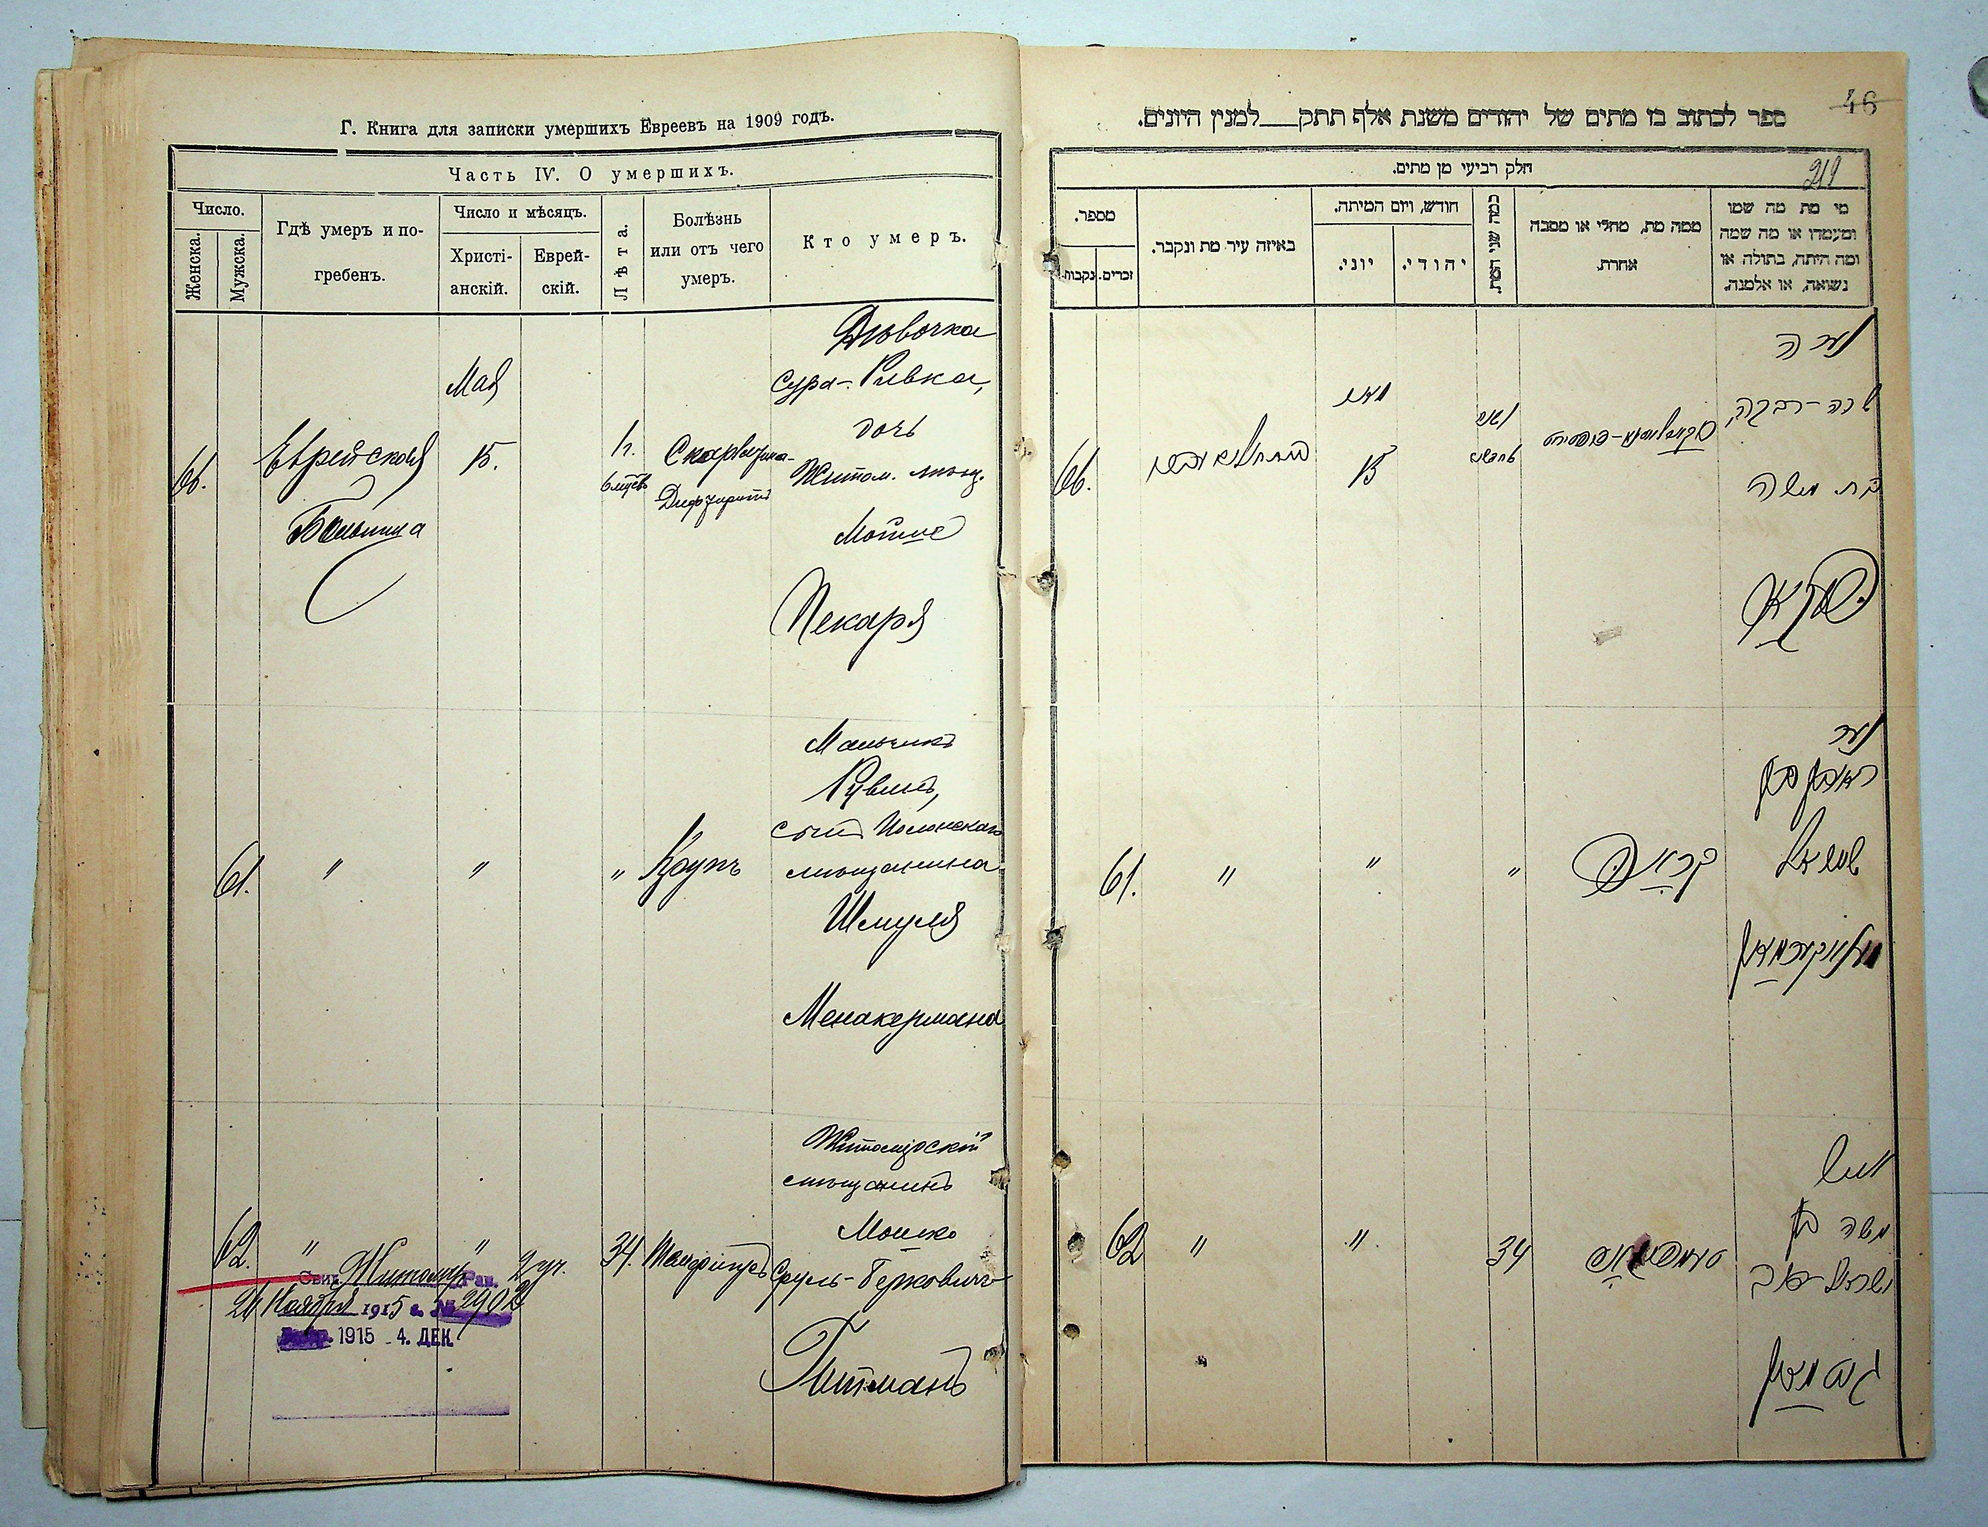 Г. Книга для записки умершихъ Евреевъ на 1909 годъ.
Часть IV. О умершихъ.
Число.
Женска.
Мужска.
Гдѣ умеръ и по-
гребенъ.
Число и мѣсяцъ.
Христі-
анскій.
Еврей-
скій.
Лѣта.
Болѣзнь
или отъ чего
умеръ.
Кто умеръ.
66.
Еврейская
Больница
Мая
15.
1 г.
6 мѣс.
Скарлатина-
Дифтеритъ
Дѣвочка
Сура-Ривка,
дочь
Житом. мѣщ.
Мошко
Пекаря
61.
"
"
"
Крупъ
Мальчикъ
Рувинъ,
сынъ Полонскаго
мѣщанина
Шмуля
Менакермана
62.
"
"
34.
Житомірскій
мѣщанинъ
Мошко
Сруль-Берковичъ
Гитманъ
Свид. Житомір. Рав.
24 Ноября 1915 г. №
1915 4. ДЕК.
46
ספר לכתוב בו מתים של יהודים משנת אלף תתק___למנין היונים.
219
חלק רביעי מן מתים.
מספר.
נקבות.
זכרים.
באיזה עיר מת ונקבר.
חודש, ויום המיתה.
יוני.
יהודי.
כמה שני המת.
ממה מת, מחלי או מסבה
אחרת.
מי מת מה שמו
ומעמדו או מה שמה
ומה היתה, בתולה או
נשואה, או אלמנה.
66.
מאי
15
נערה
שרה-רבקה
בת משה
פעקאר
61.
"
"
"
קרופ
נער
ראובן בן
שמואל
מענאקערמאן
62
"
"
34
איש
משה בן
ישראל-דוב
גיטמאן